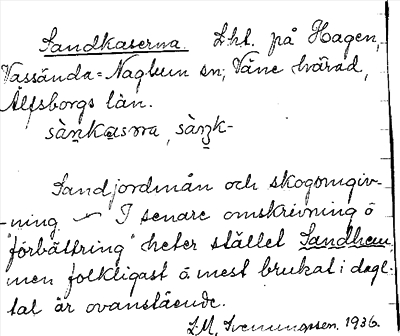 Sandkaserna. Lht. på Hagen,
Vassända=Naglum sn, Väne härad,
Älfsborgs län.
sàn̠kasɷra, sàn̠k-
Sandjordmån och skogomgiv-
-ning. ~ I senare omskrivning ö
"förbättring" heter stället Sandhem,
men folkligast ö mest brukat i dagl.
tal är ovanstående.
LM, Svenungsson. 1936.